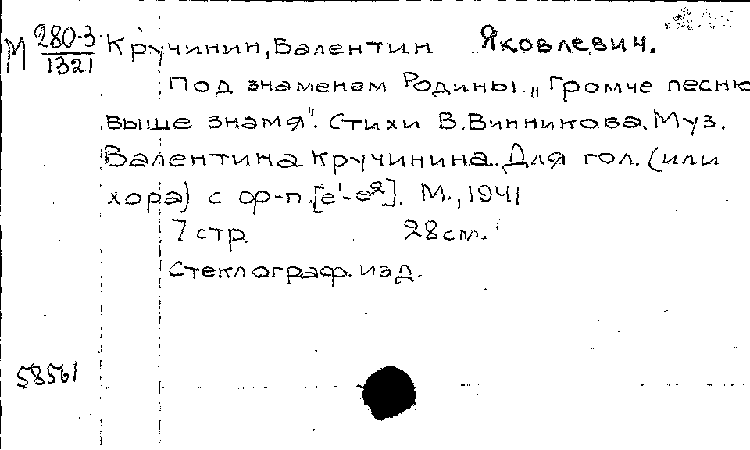 М 280-3/1321 Кручинин, Валентин Яковлевич.
Под знаменем Родины. „Громче песню
выше знамя". Стихи В. Винникова. Муз.
Валентина Кручинина. Для гол. (или
хора) с ф-п. [e¹-e²]. М., 1941
7 стр. 28 см.
Стеклограф. изд.
58561